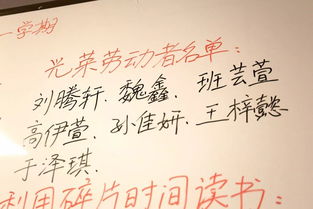 一学期
光荣劳动者名单：
刘腾轩、魏鑫、班芸萱
高伊萱、孙佳妍、王梓懿
于泽琪.
利用碎片时间读书：